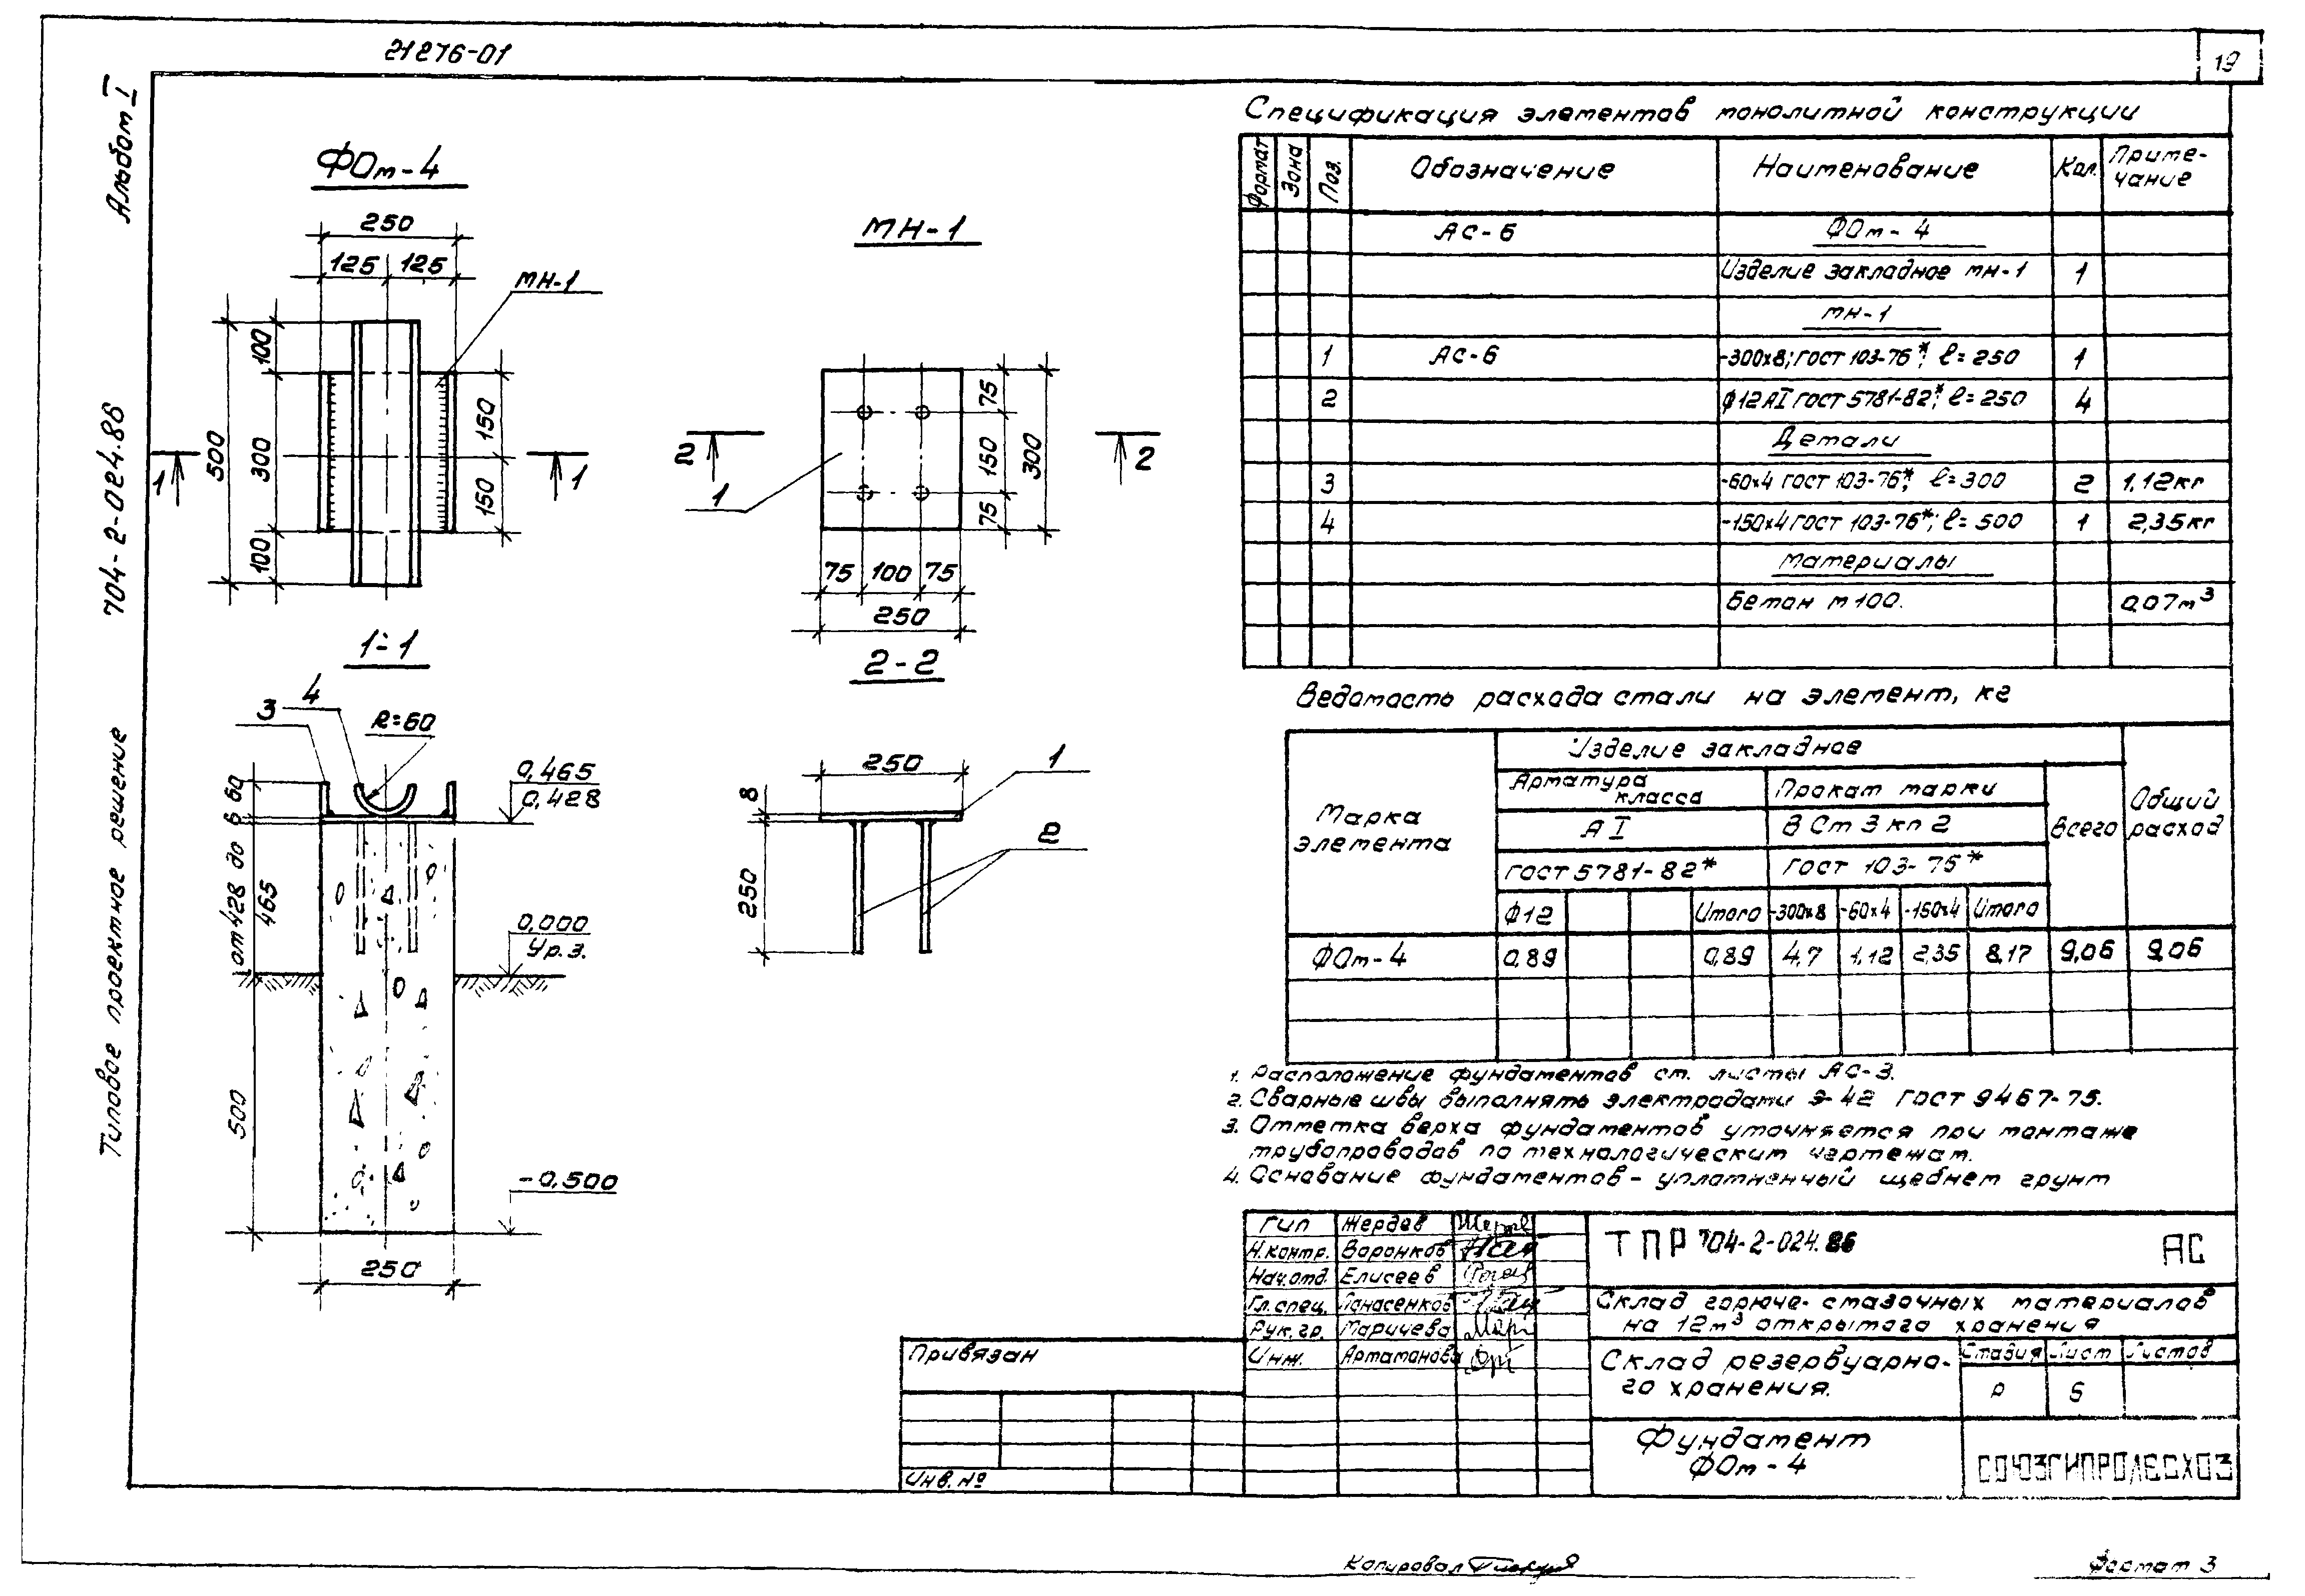 21276-01
19
Альбом I
704-2-024.86
Типовое проектное решение
ФОм-4
250
125 125
МН-1
100
300
100
500
150
150
1 1
МН-1
2 2
1
75
150
75
300
75 100 75
250
1-1
3
4
R=60
0,465
0,428
60
6
от 428 до
465
0,000
Ур.з.
500
-0,500
250
2-2
250
1
8
2
250
Спецификация элементов монолитной конструкции
Формат Зона Поз. Обозначение Наименование Кол. Приме-
чание
АС-6 ФОм-4
Изделие закладное МН-1 1
МН-1
1 АС-6 -300х8; ГОСТ 103-76*; ℓ=250 1
2 ф12АI ГОСТ 5781-82*; ℓ=250 4
Детали
3 -60х4 ГОСТ 103-76*; ℓ=300 2 1,12кг
4 -150х4 ГОСТ 103-76*; ℓ=500 1 2,35кг
Материалы
Бетон М100. 0,07м³
Ведомость расхода стали на элемент, кг
Марка
элемента
Изделие закладное
Арматура
класса
Прокат марки
АI
ВСт3кп2
Всего
Общий
расход
ГОСТ 5781-82*
ГОСТ 103-76*
ф12 Итого -300х8 -60х4 -150х4 Итого
ФОм-4 0,89 0,89 4,7 1,12 2,35 8,17 9,06 9,06
1. Расположение фундаментов см. листы АС-3.
2. Сварные швы выполнять электродами Э-42 ГОСТ 9467-75.
3. Отметка верха фундаментов уточняется при монтаже
трубопроводов по технологическим чертежам.
4. Основание фундаментов - уплотненный щебнем грунт
Гип Жердев
Н.контр. Воронков
Нач.отд. Елисеев
Гл.спец. Панасенков
Рук.гр. Маричева
Инж. Артамонова
ТПР 704-2-024.86 АС
Склад горюче-смазочных материалов
на 12м³ открытого хранения
Склад резервуарно-
го хранения.
Стадия Лист Листов
Р 6
Фундамент
ФОм-4
СОЮЗГИПРОЛЕСХОЗ
Привязан
Инв. №
Копировал
Формат 3